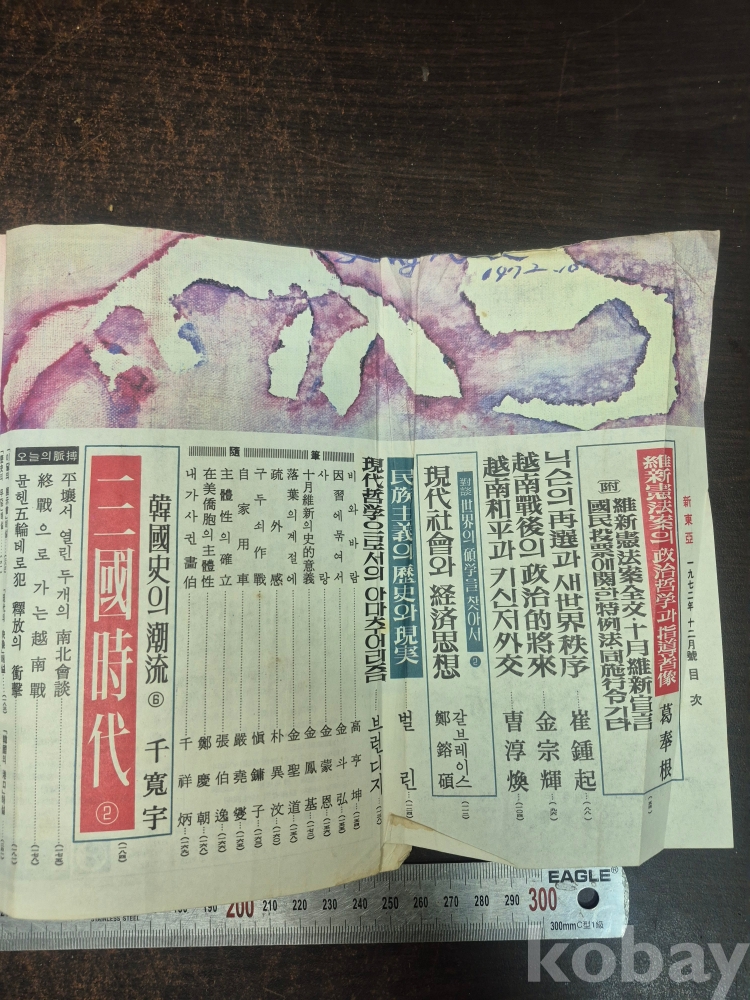 1972.
新東亞 一九七二年 十二月號 目次
維新憲法案의 政治哲学과 指導者像 葛奉根
附 維新憲法案全文·十月維新宣言
國民投票에関한特例法同施行令기타
닉슨의 再選과 새世界秩序 崔鍾起
越南戰後의 政治的將來 金宗輝
越南和平과 키신저外交 曺淳煥
對談 世界의 碩学을 찾아서
現代社會와 経済思想 갈브레이스 鄭鎔碩
民族主義의 歷史와 現実 벌린
現代哲学으로서의 아마츄어리즘 브런디지
隨筆
비와 바람 高亨坤
因習에 묶여서 金斗弘
사랑 金蒙恩
十月維新의 史的意義 金鳳基
落葉의 계절에 金聖道
疏外感 朴異汶
구두쇠作戰 愼鏞子
自家用車 嚴堯燮
主體性의 確立 張伯逸
在美僑胞의 主體性 鄭慶朝
내가 사귄 畵伯 千祥炳
韓國史의 潮流 ⑥ 千寬宇
三國時代 ②
오늘의 脈搏
平壤서 열린 두개의 南北會談
終戰으로 가는 越南戰
뮌헨五輪테로犯 釋放의 衝擊
STAINLESS STEEL
190 200 210 220 230 240 250 260 270 280 290 300
EAGLE
300mm C型1級
kobay